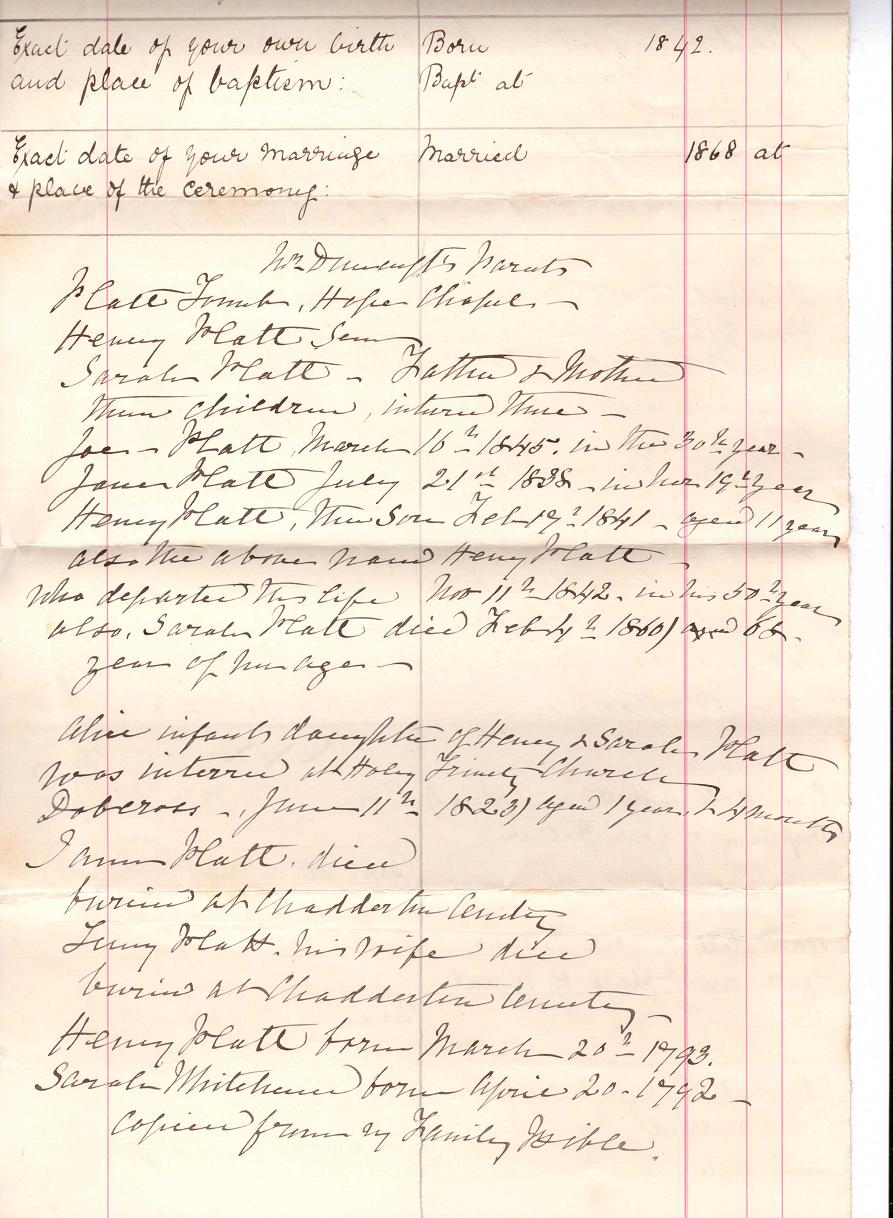 Exact date of your own birth Born 1842.
and place of baptism: Bapt at
Exact date of your marriage Married 1868 at
& place of the ceremony:
Parents
Platt Tomb, Hope Chapel -
Henry Platt Senr
Sarah Platt - Father & Mother
their children, interred there -
Joe - Platt, March 16th 1845. in the 30th year -
James Platt July 21st 1838 - in her 19th year
Henry Platt, their Son Feb 17th 1841 - aged 11 years
also the above named Henry Platt -
who departed this life Nov 11th 1842. in his 50th year
also, Sarah Platt died Feb 4th 1860) aged 68 -
year of her age -
Alice infant daughter of Henry & Sarah Platt
was interred at Holy Trinity Church
Dobcross -, June 11th 1823) aged 1 year, & 4 months
James Platt. died
buried at Chadderton Cemetery
Platt. his wife died
buried at Chadderton Cemetery -
Henry Platt born March 20th 1793.
Sarah born April 20 - 1792 -
Copied from my Family Bible.